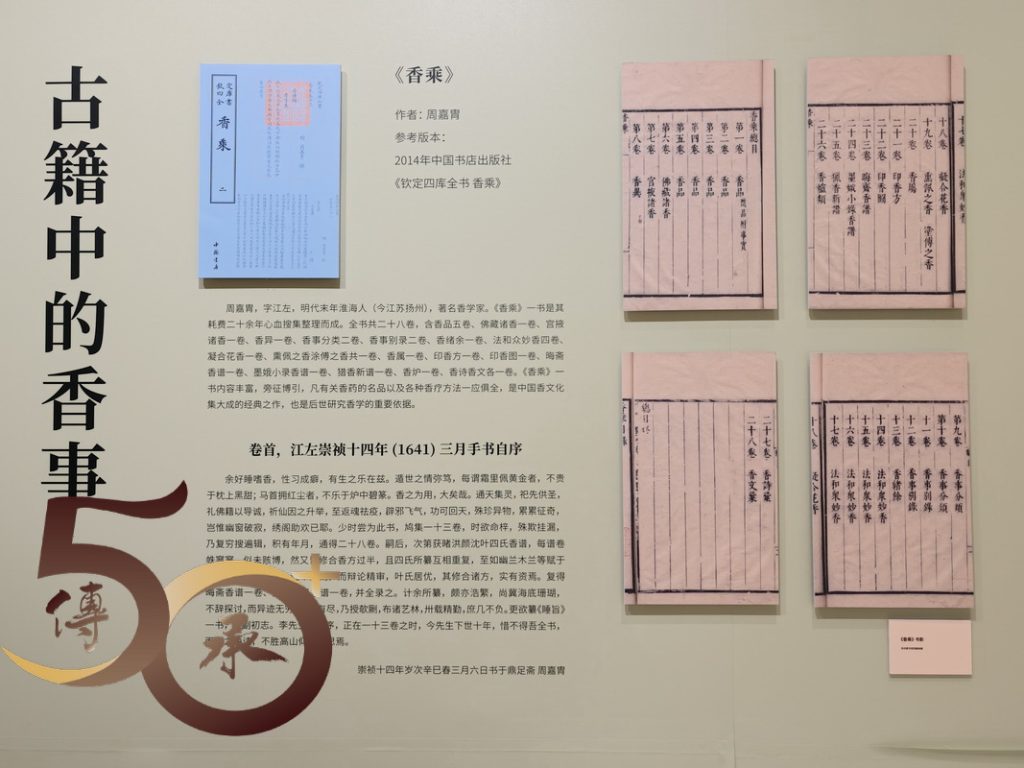 古籍中的香事
钦定四库全书
香乘
二
中国书店
《香乘》
作者：周嘉胄
参考版本：
2014年中国书店出版社
《钦定四库全书 香乘》
周嘉胄，字江左，明代末年淮海人（今江苏扬州），著名香学家。《香乘》一书是其
耗费二十余年心血搜集整理而成。全书共二十八卷，含香品五卷、佛藏诸香一卷、宫掖
诸香一卷、香异一卷、香事分类二卷、香事别录二卷、香绪余一卷、法和众妙香四卷、
凝合花香一卷、熏佩之香涂傅之香共一卷、香属一卷、印香方一卷、印香图一卷、晦斋
香谱一卷、墨娥小录香谱一卷、猎香新谱一卷、香炉一卷、香诗香文各一卷。《香乘》一
书内容丰富，旁征博引，凡有关香药的名品以及各种香疗方法一应俱全，是中国香文化
集大成的经典之作，也是后世研究香学的重要依据。
卷首，江左崇祯十四年 (1641) 三月手书自序
余好睡嗜香，性习成癖，有生之乐在兹。遁世之情弥笃，每谓霜里佩黄金者，不贵
于枕上黑甜；马首拥红尘者，不乐于炉中碧篆。香之为用，大矣哉。通天集灵，祀先供圣，
礼佛籍以导诚，祈仙因之升举，至返魂祛疫，辟邪飞气，功可回天，殊珍异物，累累征奇，
岂惟幽窗破寂，绣阁助欢已耶。少时尝为此书，鸠集一十三卷，时欲命梓，殊欺挂漏，
乃复穷搜遍辑，积有年月，通得二十八卷。嗣后，次第获睹洪颜沈叶四氏香谱，每谱卷
似未赅博，然又 修合香方过半，且四氏所纂互相重复，至如幽兰木兰等赋于
而辩论精审，叶氏居优，其修合诸方，实有资焉。复得
晦斋香谱一卷、 谱一卷，并全录之。计余所纂，颇亦浩繁，尚冀海底珊瑚，
不辞探讨，而异迹无穷 尽，乃授欹劂，布诸艺林，卅载精勤，庶几不负。更欲纂《睡旨》
一书， 副初志。李先生 序，正在一十三卷之时，今先生下世十年，惜不得吾全书，
不胜高山仰 思焉。
崇祯十四年岁次辛巳春三月六日书于鼎足斋 周嘉胄
50+
傳承
香乘總目
第一卷 香品
第二卷 香品
第三卷 香品
第四卷 香品
第五卷 香品
第六卷 佛藏諸香
第七卷 宮掖諸香
第八卷 香異
十八卷 凝合花香
十九卷 熏佩之香 塗傅之香
二十卷 香屬
二十一卷 印香方
二十二卷 印香圖
二十三卷 晦齋香譜
二十四卷 墨娥小錄香譜
二十五卷 獵香新譜
二十六卷 香爐類
二十七卷 香詩彙
二十八卷 香文彙
第九卷 香事分類
第十卷 香事分類
十一卷 香事別錄
十二卷 香事別錄
十三卷 香緒餘
十四卷 法和衆妙香
十五卷 法和衆妙香
十六卷 法和衆妙香
十七卷 法和衆妙香
《香乘》书影